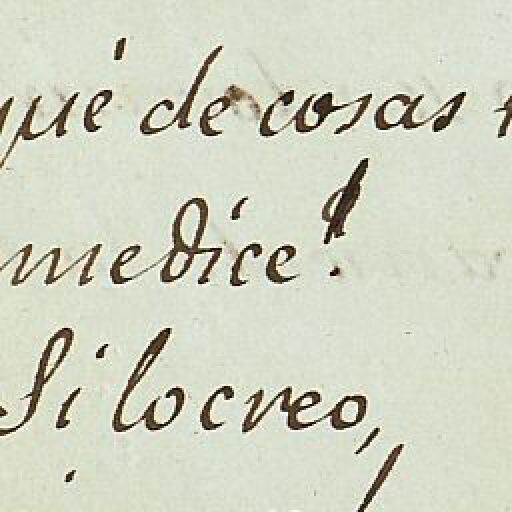 qué de cosas
me dice!
Si lo creo,